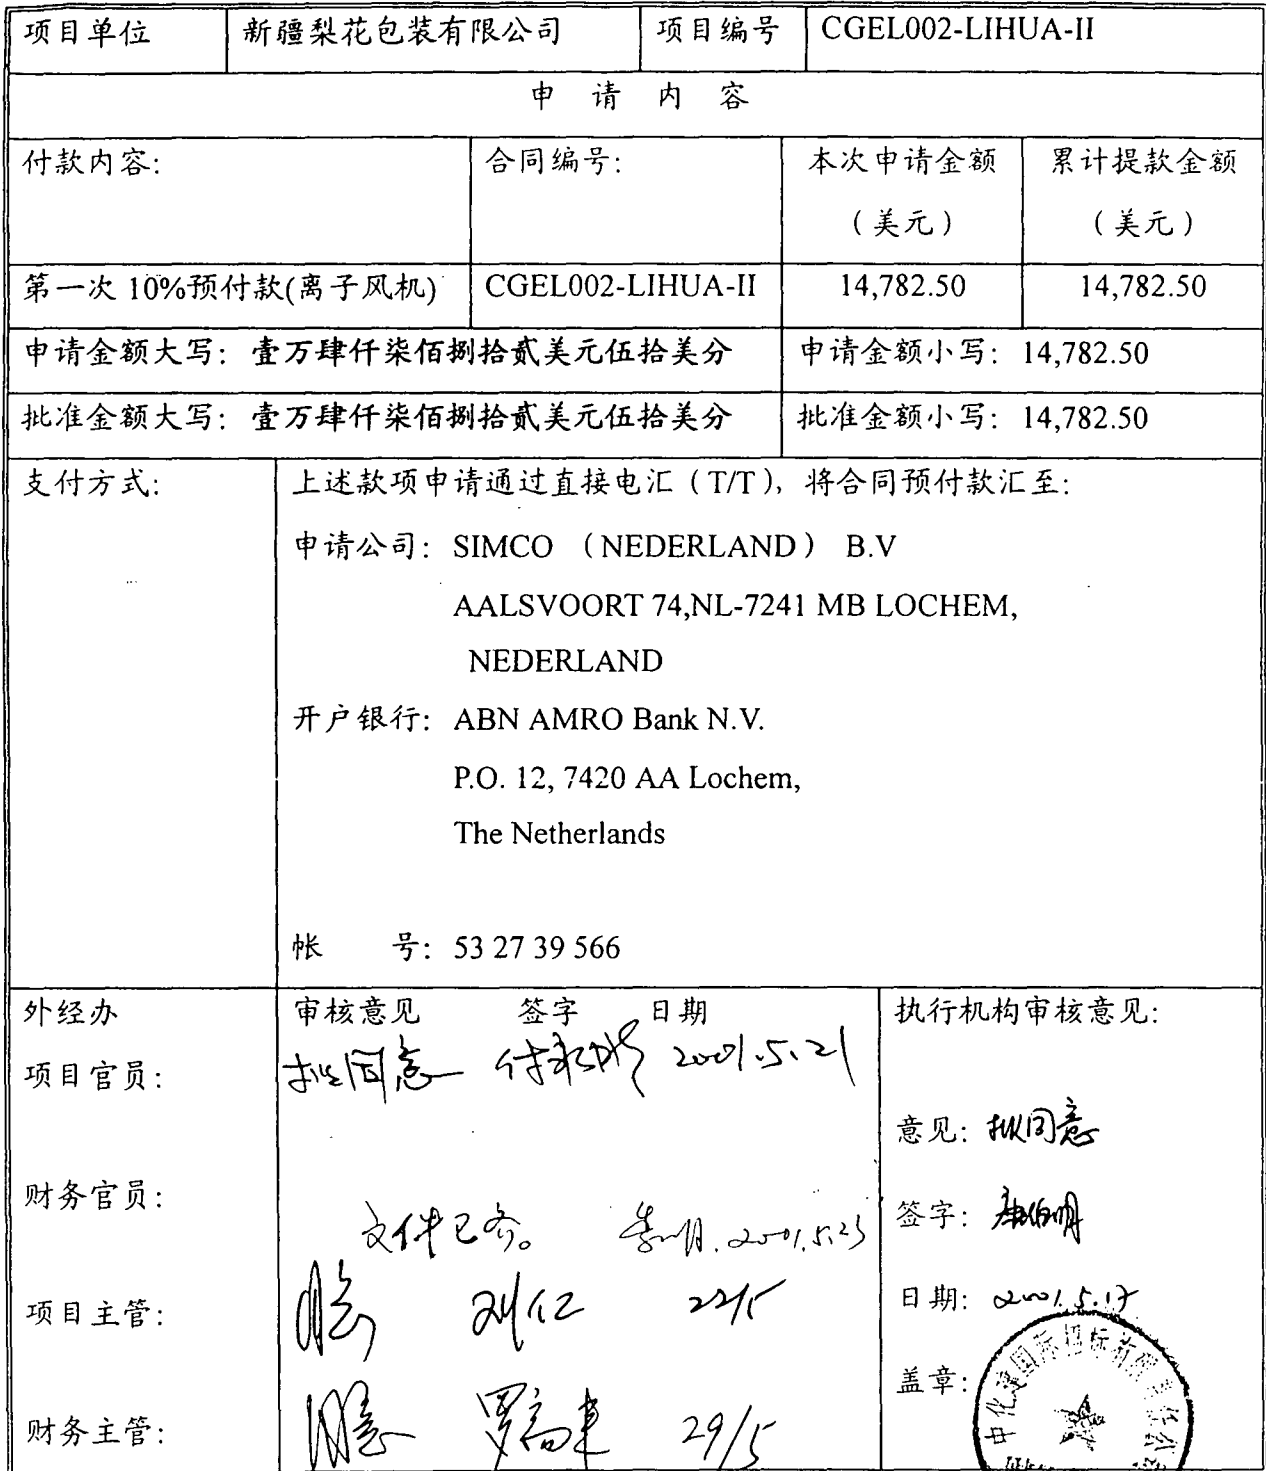 项目单位 新疆梨花包装有限公司 项目编号 CGEL002-LIHUA-II
申 请 内 容
付款内容: 合同编号: 本次申请金额 累计提款金额
（美元） （美元）
第一次 10%预付款(离子风机) CGEL002-LIHUA-II 14,782.50 14,782.50
申请金额大写: 壹万肆仟柒佰捌拾贰美元伍拾美分 申请金额小写: 14,782.50
批准金额大写: 壹万肆仟柒佰捌拾贰美元伍拾美分 批准金额小写: 14,782.50
支付方式: 上述款项申请通过直接电汇（T/T），将合同预付款汇至:
申请公司: SIMCO （NEDERLAND） B.V
AALSVOORT 74,NL-7241 MB LOCHEM,
NEDERLAND
开户银行: ABN AMRO Bank N.V.
P.O. 12, 7420 AA Lochem,
The Netherlands
帐 号: 53 27 39 566
外经办 审核意见 签字 日期 执行机构审核意见:
项目官员: 拟同意 2001.5.21
意见: 拟同意
财务官员: 文件已齐。 2001.5.23
签字:
项目主管: 同意 刘仁 22/5
日期: 2001.5.17
盖章: 中化建国际招标有限责任公
财务主管: 同意 罗高来 29/5